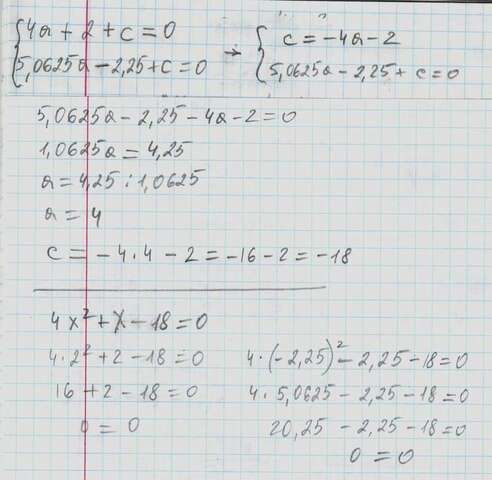 4a + 2 + c = 0
5,0625a - 2,25 + c = 0
→
c = -4a - 2
5,0625a - 2,25 + c = 0
5,0625a - 2,25 - 4a - 2 = 0
1,0625a = 4,25
a = 4,25 : 1,0625
a = 4
c = -4 · 4 - 2 = -16 - 2 = -18
4x² + x - 18 = 0
4 · 2² + 2 - 18 = 0
16 + 2 - 18 = 0
0 = 0
4 · (-2,25)² - 2,25 - 18 = 0
4 · 5,0625 - 2,25 - 18 = 0
20,25 - 2,25 - 18 = 0
0 = 0